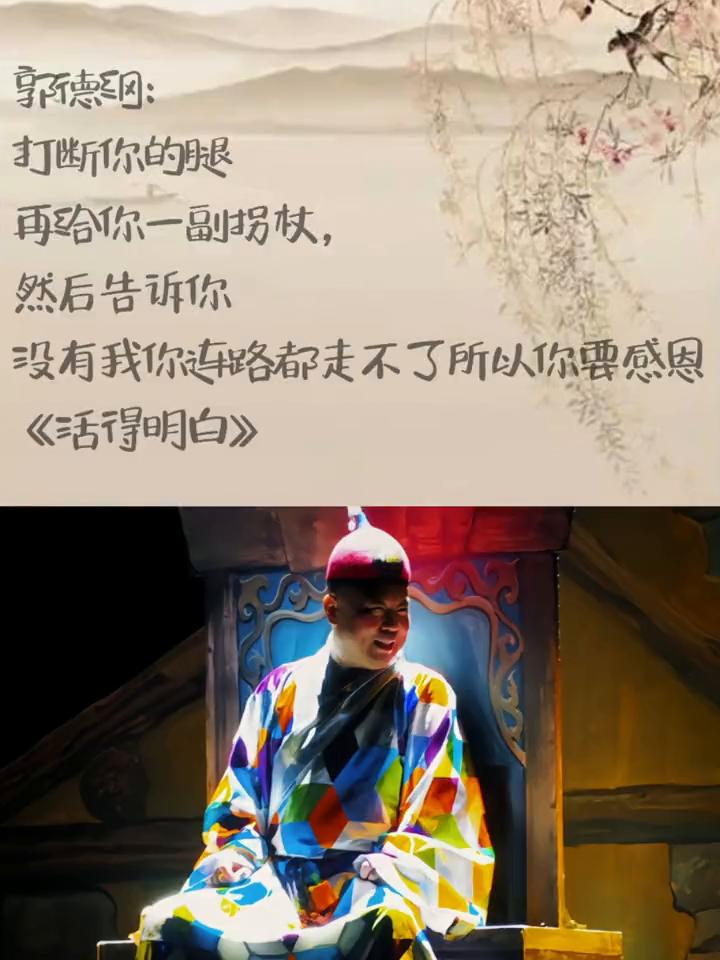 郭德纲:
打断你的腿
再给你一副拐杖,
然后告诉你
没有我你连路都走不了所以你要感恩
《活得明白》